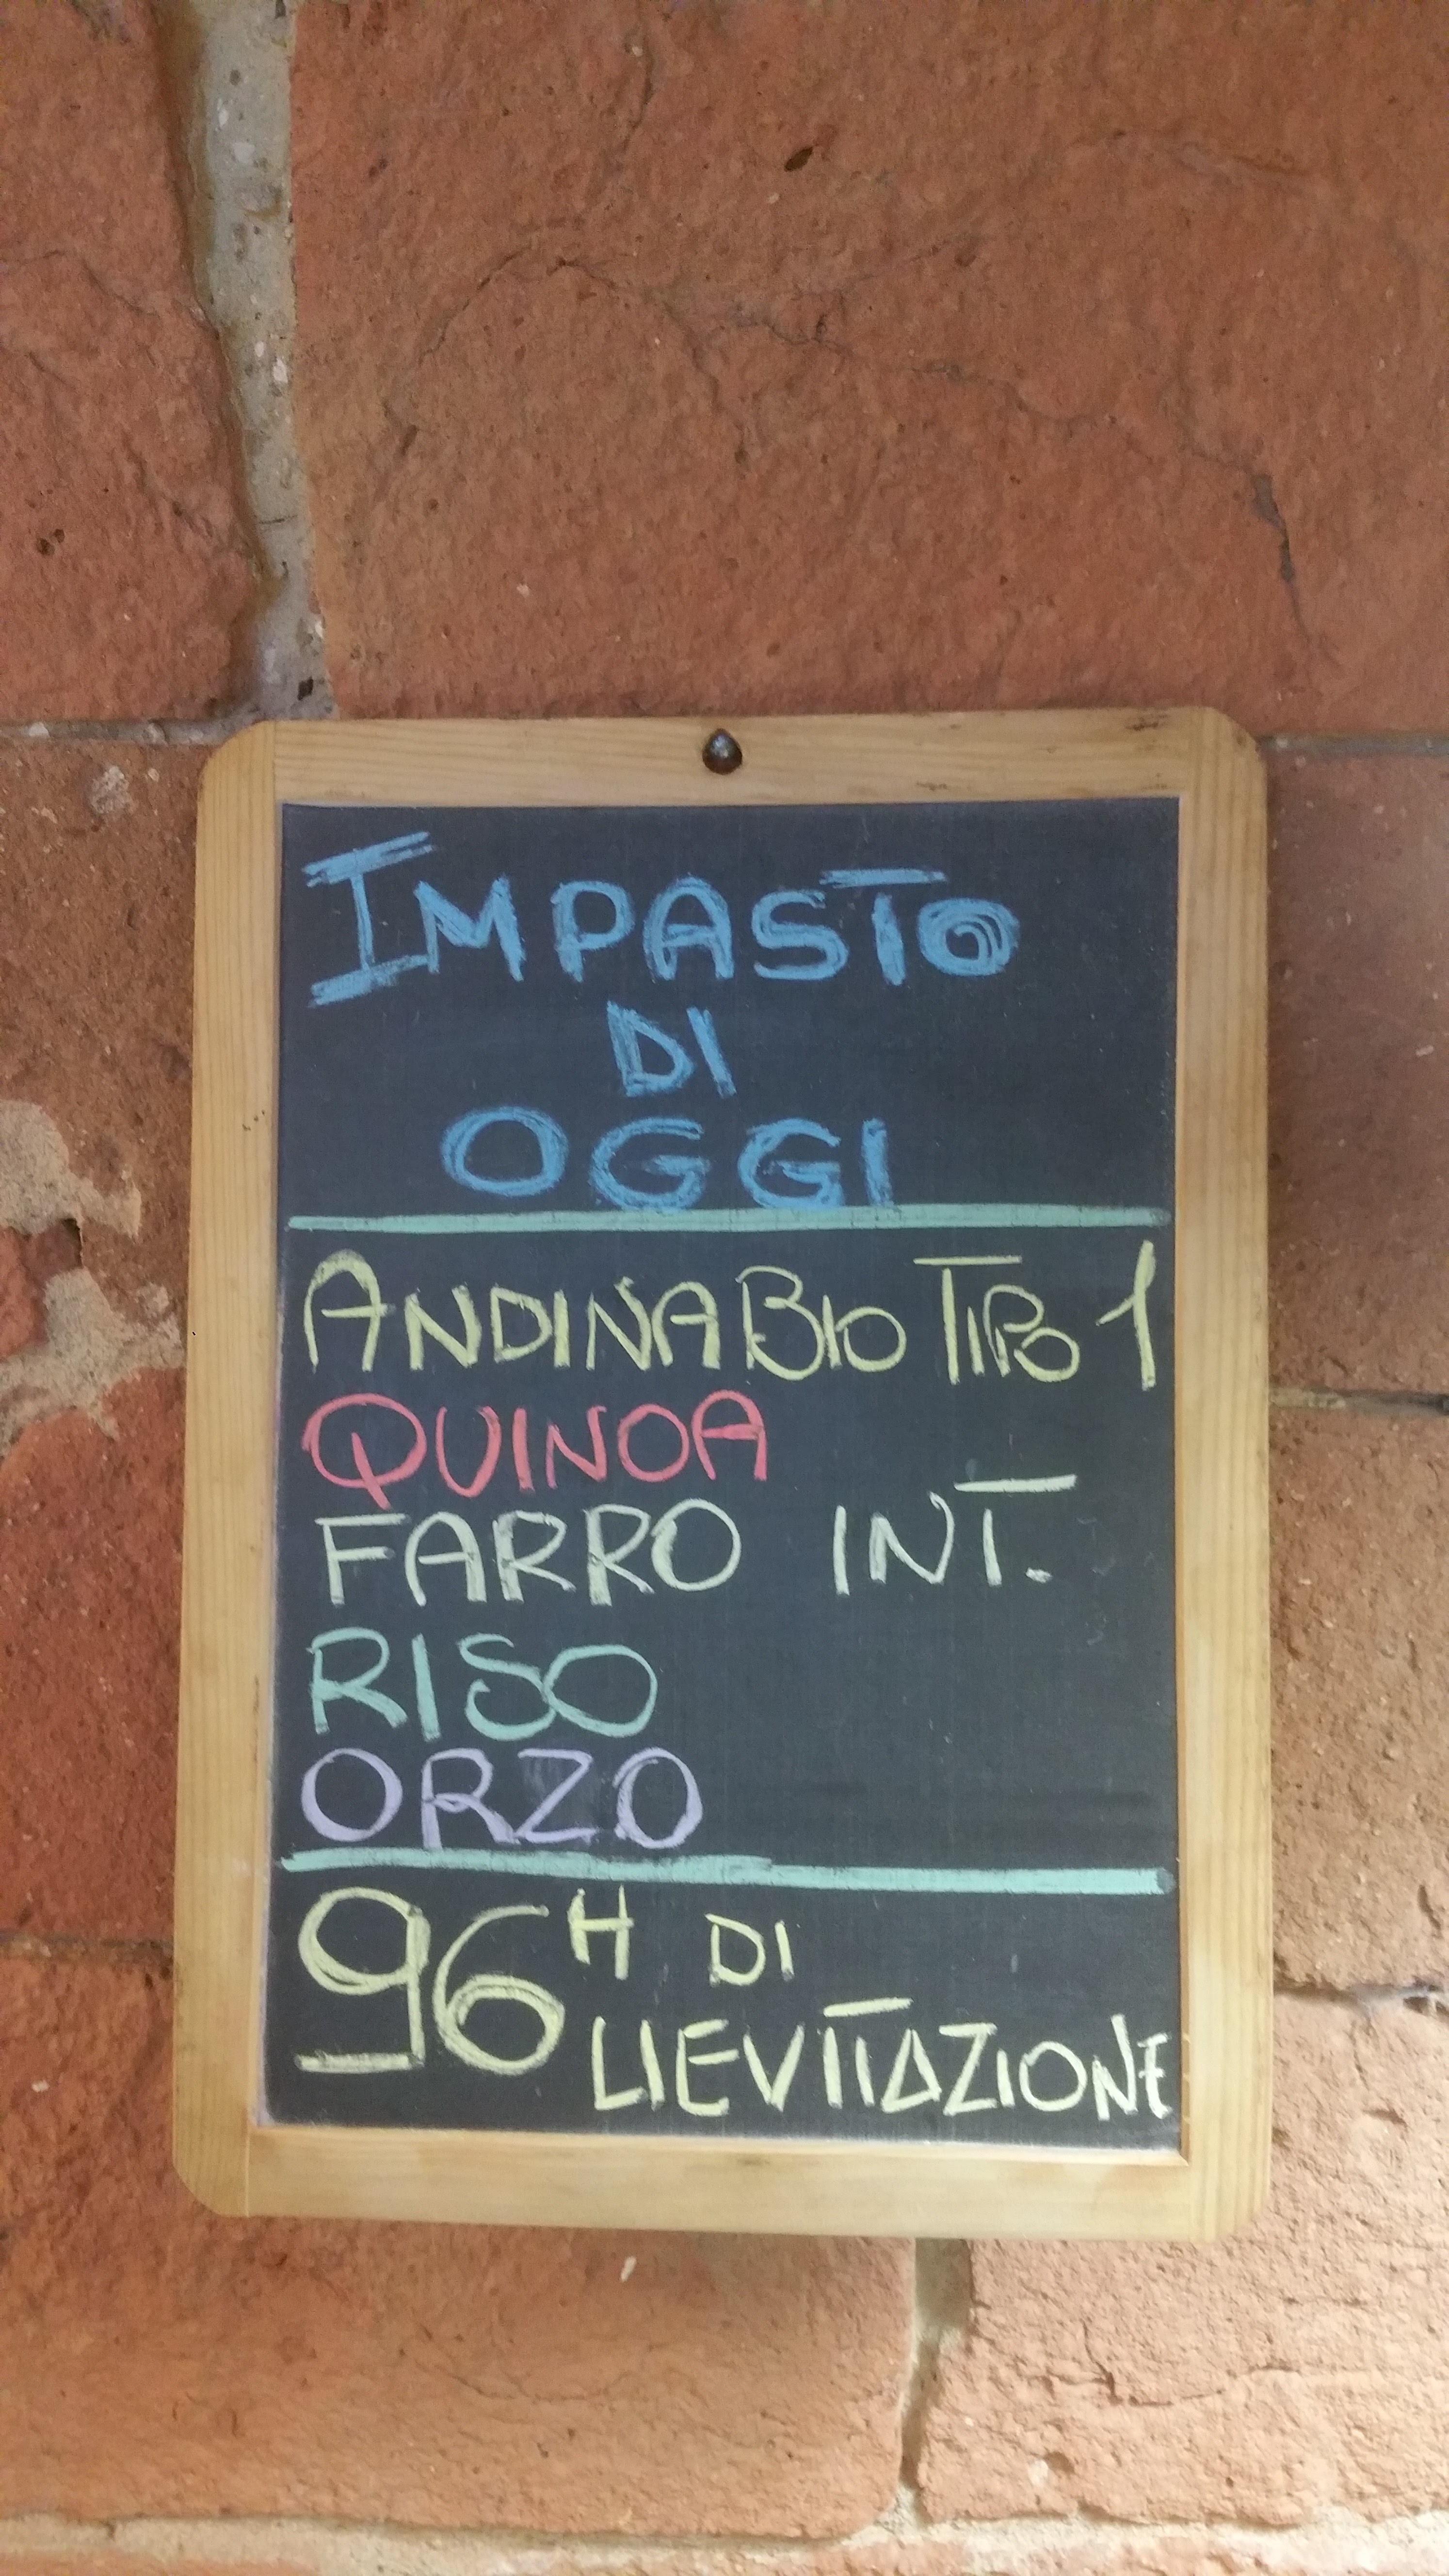 IMPASTO
DI
OGGI
ANDINA BIO TIPO 1
QUINOA
FARRO INT.
RISO
ORZO
96H DI
LIEVITAZIONE